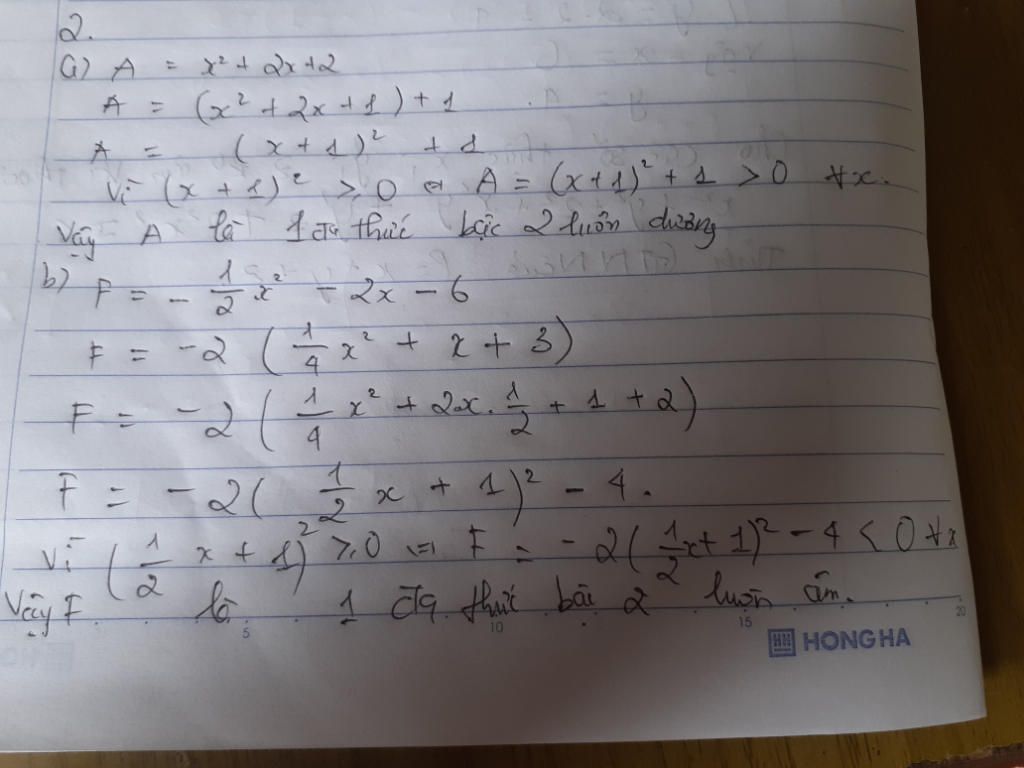 2.
a) A = x² + 2x + 2
A = (x² + 2x + 1) + 1
A = (x + 1)² + 1
Vì (x + 1)² ≥ 0 ⇔ A = (x+1)² + 1 > 0 ∀x.
Vậy A là 1 đa thức bậc 2 luôn dương
b) F = - 1/2 x² - 2x - 6
F = -2 (1/4 x² + x + 3)
F = -2 (1/4 x² + 2x. 1/2 + 1 + 2)
F = -2 (1/2 x + 1)² - 4.
Vì (1/2 x + 1)² ≥ 0 ⇔ F = -2(1/2 x + 1)² - 4 < 0 ∀x
Vậy F là 1 đa thức bậc 2 luôn âm.
5 10 15 20
HH HONG HA